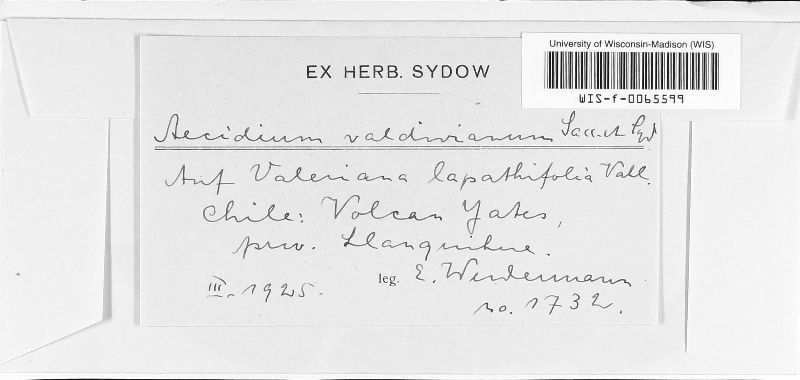 University of Wisconsin-Madison (WIS)
WIS-f-0065599
EX HERB. SYDOW
Aecidium valdivianum Sacc. et Syd
Auf Valeriana lapathifolia Vahl.
Chile: Volcan Yates,
prov. Llanquihue.
leg. E. Werdermann
III. 1925.
no. 1732.